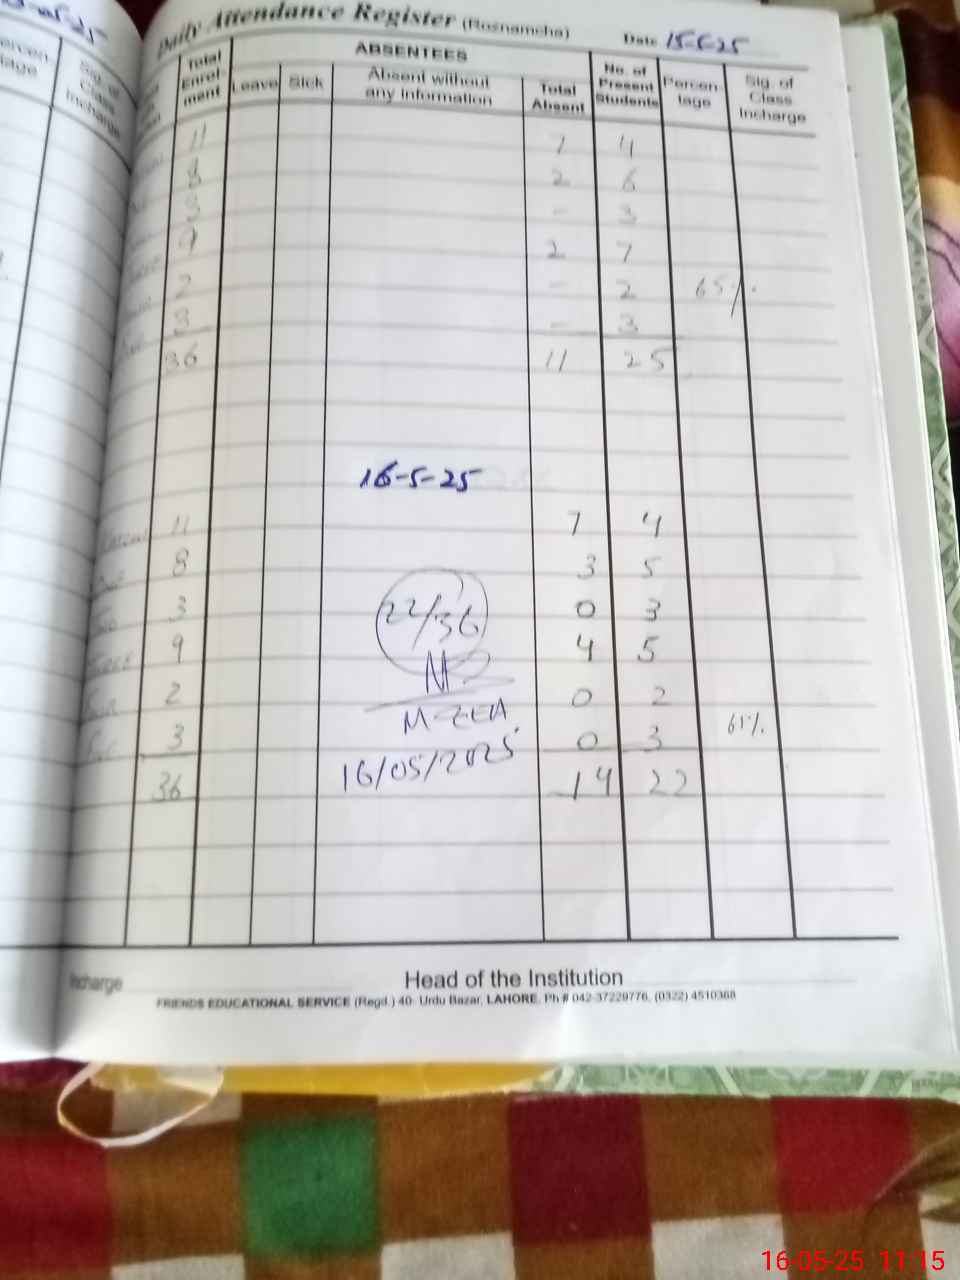 Daily Attendance Register (Roznamcha)
Date 15-5-25
ABSENTEES
Total Enrol-ment Leave Sick Absent without any information Total Absent No. of Present Students Percen-tage Sig. of Class Incharge
11 7 4
8 2 6
3 - 3
9 2 7
2 - 2 65%.
3 - 3
36 11 25
16-5-25
11 7 4
8 3 5
3 0 3
9 4 5
2 0 2
3 0 3 61%.
36 14 22
22/36
16/05/2025
Incharge Head of the Institution
FRIENDS EDUCATIONAL SERVICE (Regd.) 40- Urdu Bazar, LAHORE. Ph # 042-37229776, (0322) 4510368
16-05-25 11:15